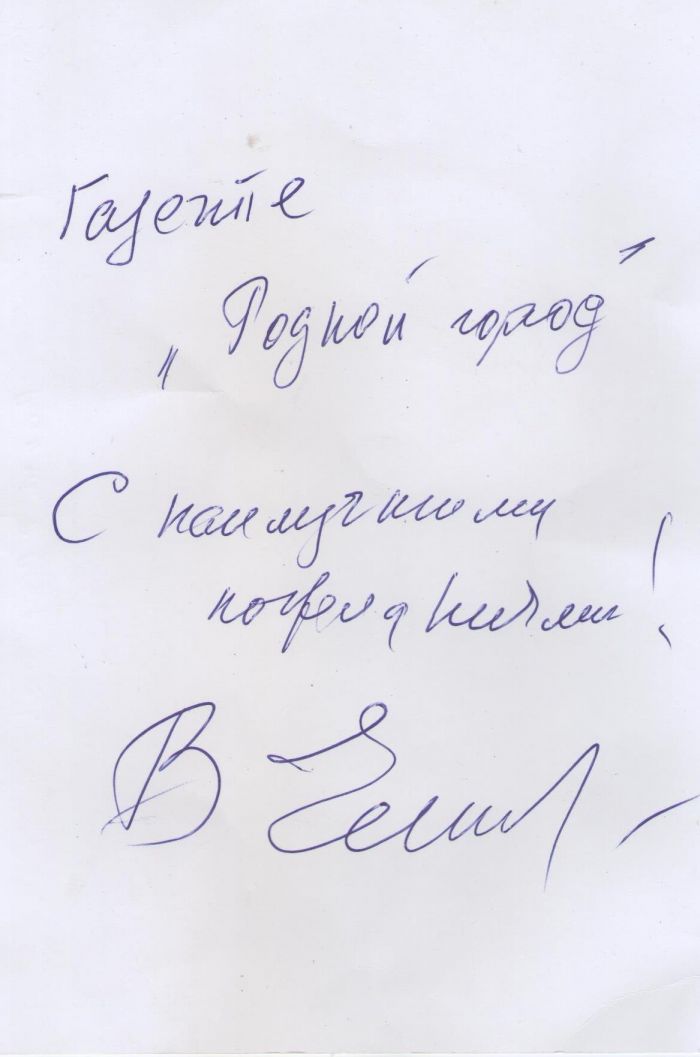 Газете
„Родной город"
С наилучшими
пожеланиями!
В